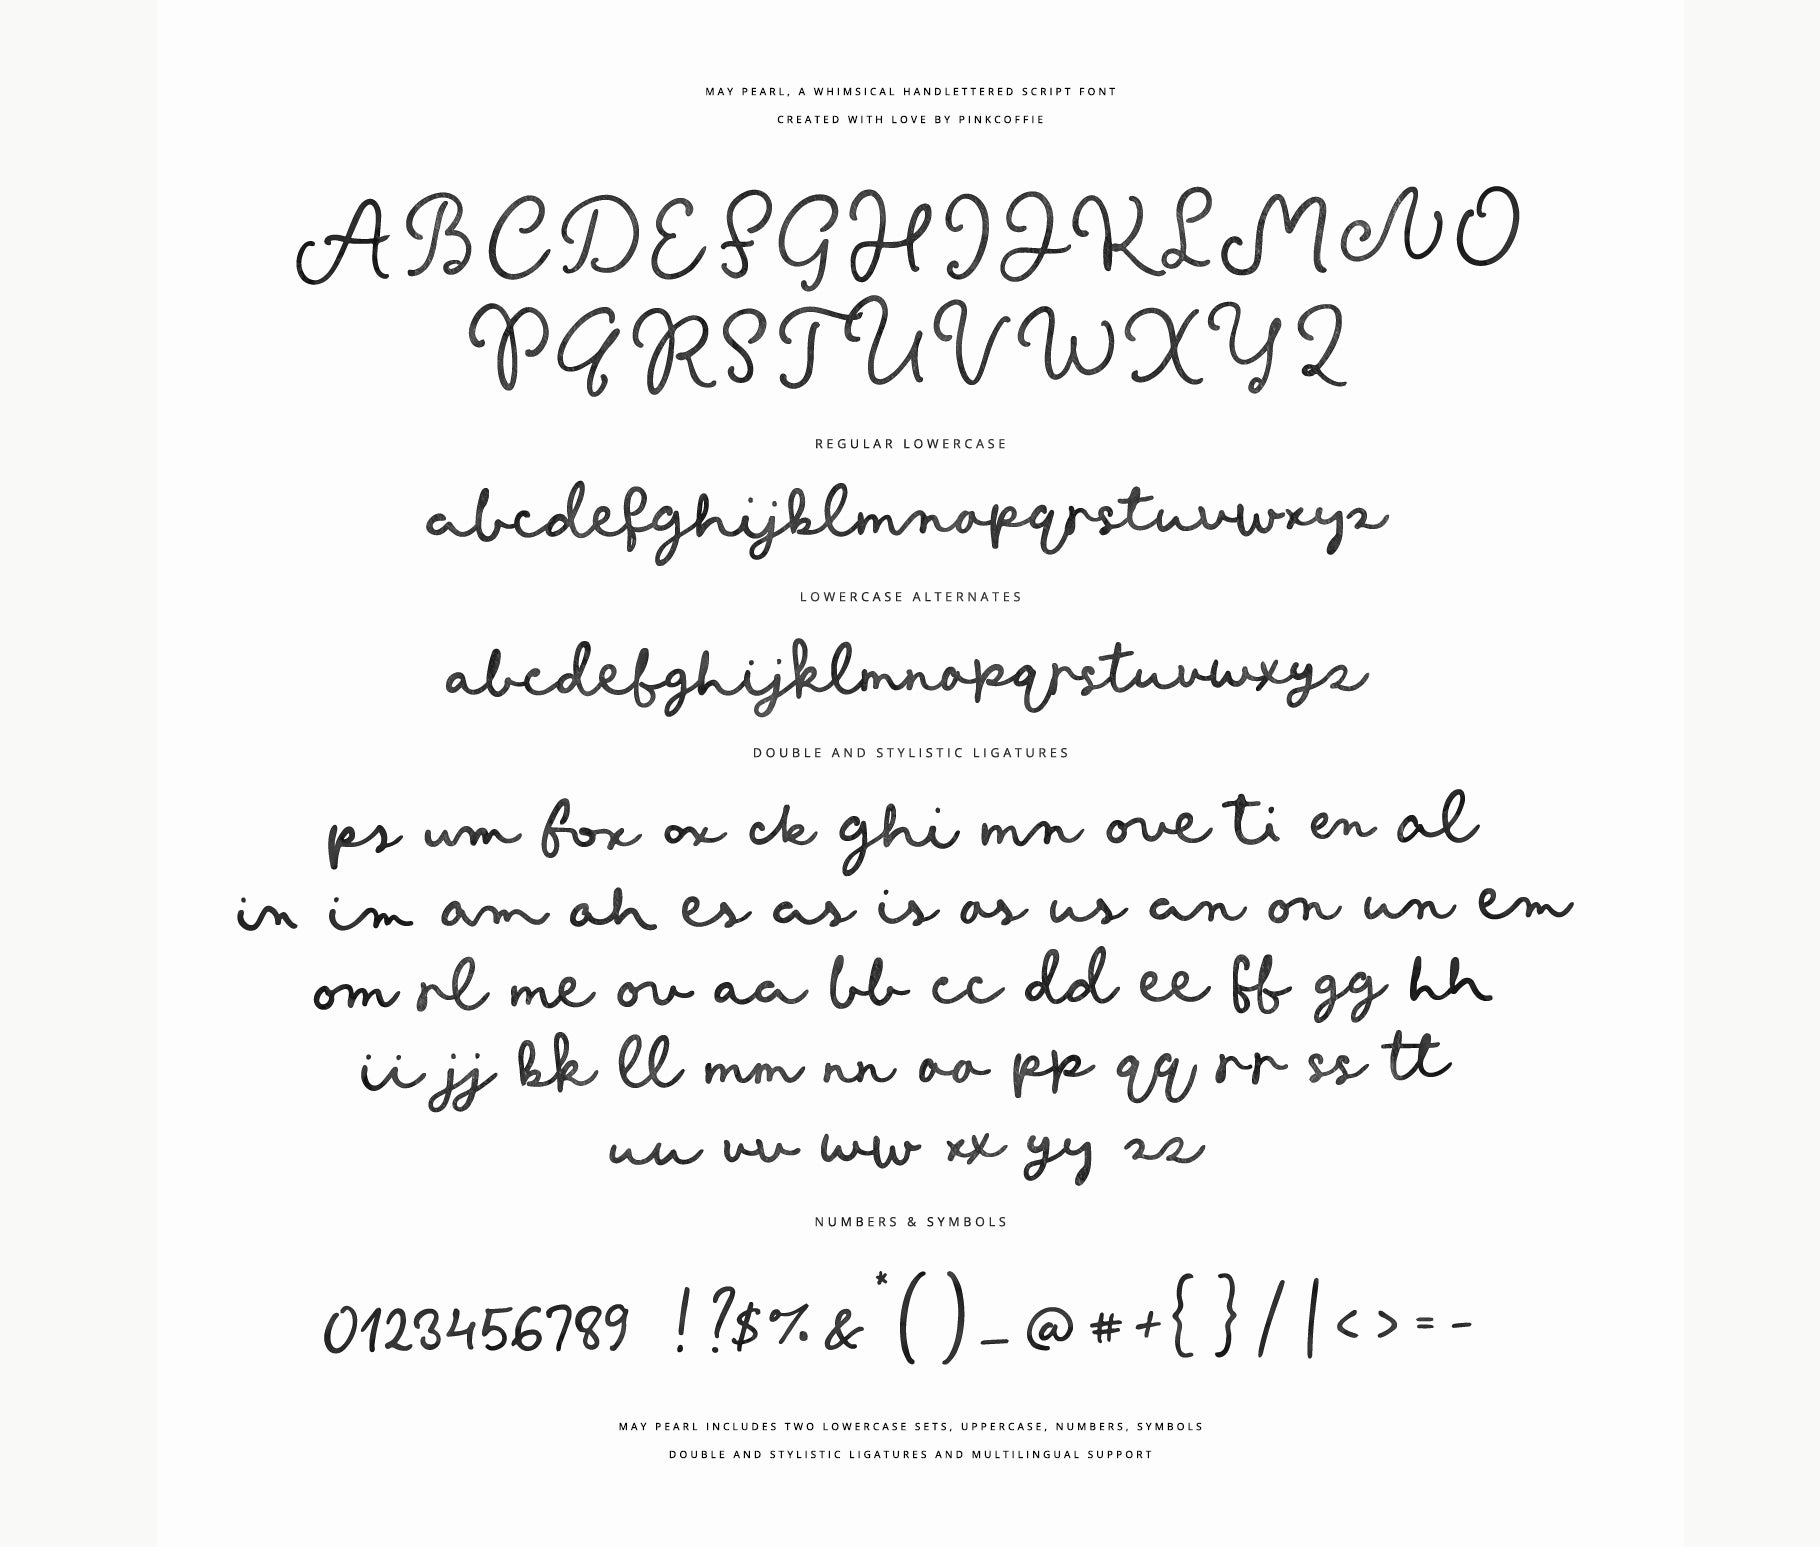 MAY PEARL, A WHIMSICAL HANDLETTERED SCRIPT FONT
CREATED WITH LOVE BY PINKCOFFIE
ABCDEFGHIJKLMNO
PQRSTUVWXYZ
REGULAR LOWERCASE
abcdefghijklmnopqrstuvwxyz
LOWERCASE ALTERNATES
abcdefghijklmnopqrstuvwxyz
DOUBLE AND STYLISTIC LIGATURES
ps um fox ox ck ghi mn ove ti en al
in im am ah es as is os us an on un em
om rl me ov aa bb cc dd ee ff gg hh
ii jj kk ll mm nn oo pp qq rr ss tt
uu vv ww xx yy zz
NUMBERS & SYMBOLS
0123456789 !?$%&*()_@#+{}/|<>=-
MAY PEARL INCLUDES TWO LOWERCASE SETS, UPPERCASE, NUMBERS, SYMBOLS
DOUBLE AND STYLISTIC LIGATURES AND MULTILINGUAL SUPPORT